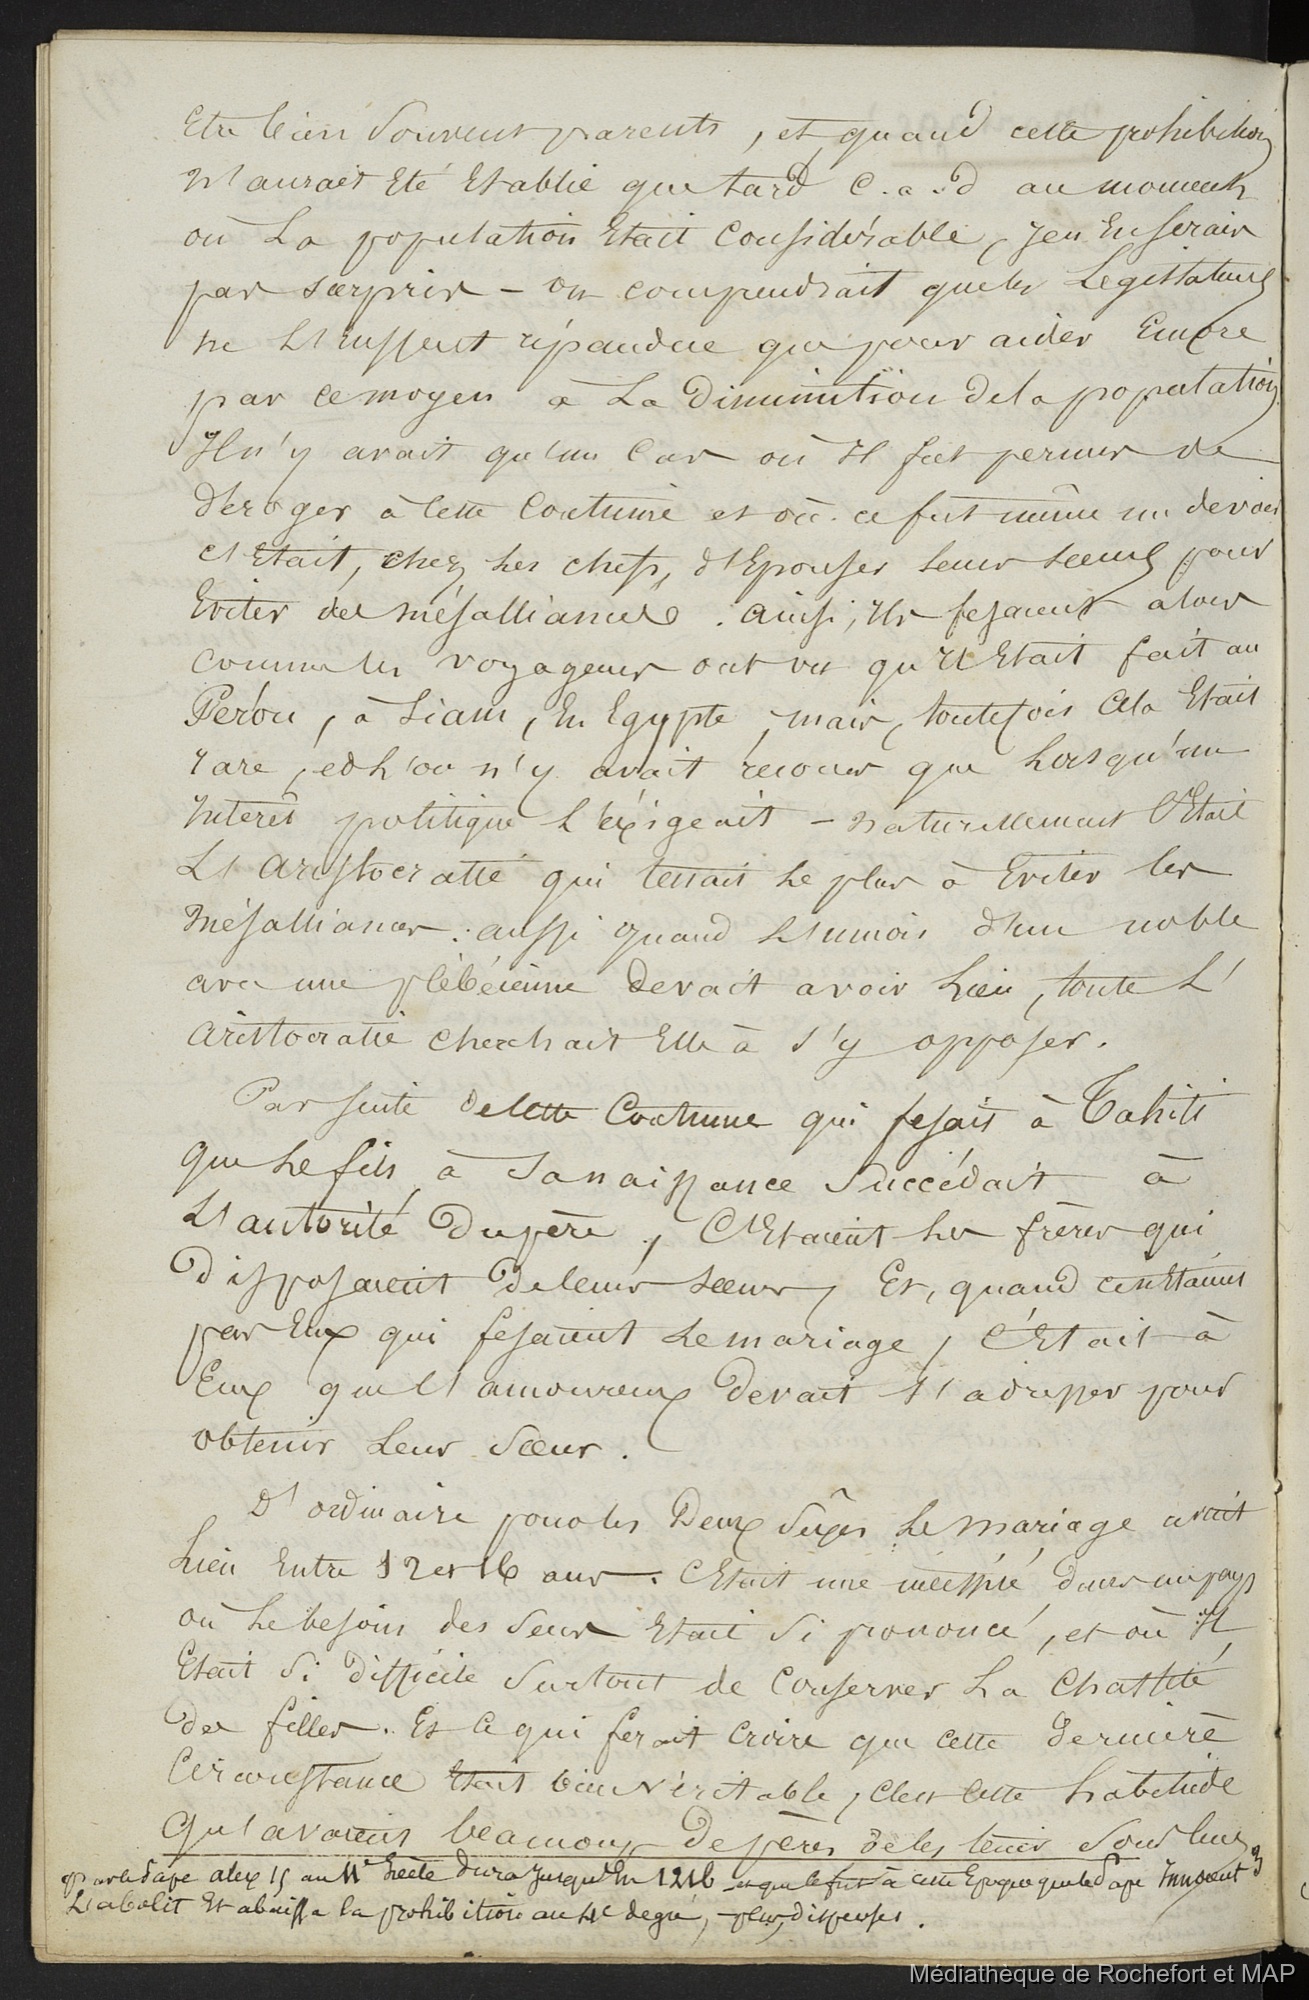 Etre bien Souvent parents, et quand cette prohibition
N'aurait Eté Etablie que tard c.a.d au moment
où La population Etait Considérable, j'en Enserais
pas surpris - on comprendrait que les Legislateurs
ne L'eussent répandue que pour aider Encore
par ce moyen à La Diminution de la population
Il n'y avait qu'un Cas où Il fut permis de
déroger à Cette Coutume et où ce fut même un devoir
C'Etait, chez Les chefs, d'Epouser Leurs Soeurs pour
Eviter des mésalliances. ainsi, Ils fesaient alors
comme les voyageurs ont vu qu'Il Etait fait au
Pérou, à Siam, En Egypte, mais, toutefois Cela Etait
rare, et L'on n'y avait recours que Lorsqu'un
Intérêt politique L'éxigeait - Naturellement C'Etait
L'aristocratie qui tenait Le plus à Eviter les
Mésalliances. aussi quand L'union d'un noble
avec une plébéienne Devait avoir Lieu, toute L'
aristocratie cherchait Elle à s'y opposer.
Par suite de Cette Coutume qui fesait à Tahiti
que Le fils à Sa naissance Succédait à
L'autorité Du père, C'Etaient Les frères qui
Disposaient De leurs Soeurs, Et, quand
par Eux qui fesaient Le mariage, C'Etait à
Eux que L'amoureux Devait S'adresser pour
obtenir Leur Soeur.
D'ordinaire pour les Deux Sexes Le Mariage avait
Lieu Entre 12 et 16 ans. C'Etait une nécessité dans un pays
où Le besoin des Sens Etait Si prononcé, et où Il
Etait Si difficile Surtout de Conserver La Chasteté
Des filles. Et Ce qui ferait Croire que cette Dernière
Circonstance Etait bien Véritable, C'est Cette habitude
Qu'avaient beaucoup De pères de les tenir Sous leurs
par le Pape alex 15 au 11e Siècle Dura jusqu'En 1216 et que ce fut à cette Epoque que le Pape Innocent 3
L'abolit Et abaissa la prohibition au 4e degré, plus, dispenses.
Médiathèque de Rochefort et MAP